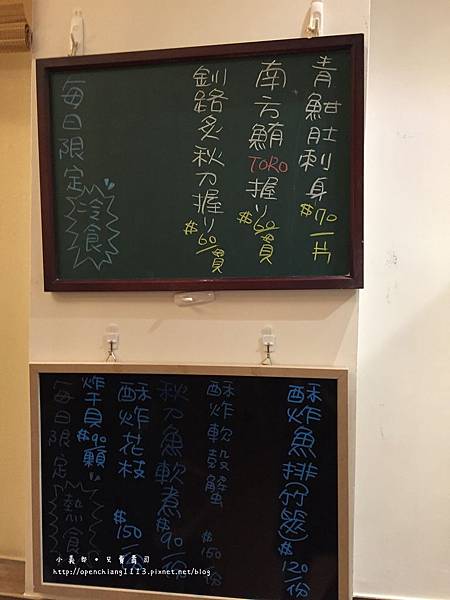 青魽肚刺身 $70/片
南方鮪TORO握り $60/貫
釧路炙秋刀握り $60/貫
每日限定 冷食
酥炸魚排(竹筴) $120/份
酥炸軟殼蟹 $160/份
秋刀魚軟煮 $90/份
酥炸花枝 $150/份
炸干貝 $90/顆
每日限定 熱食
http://openchiang1113.pixnet.net/blog